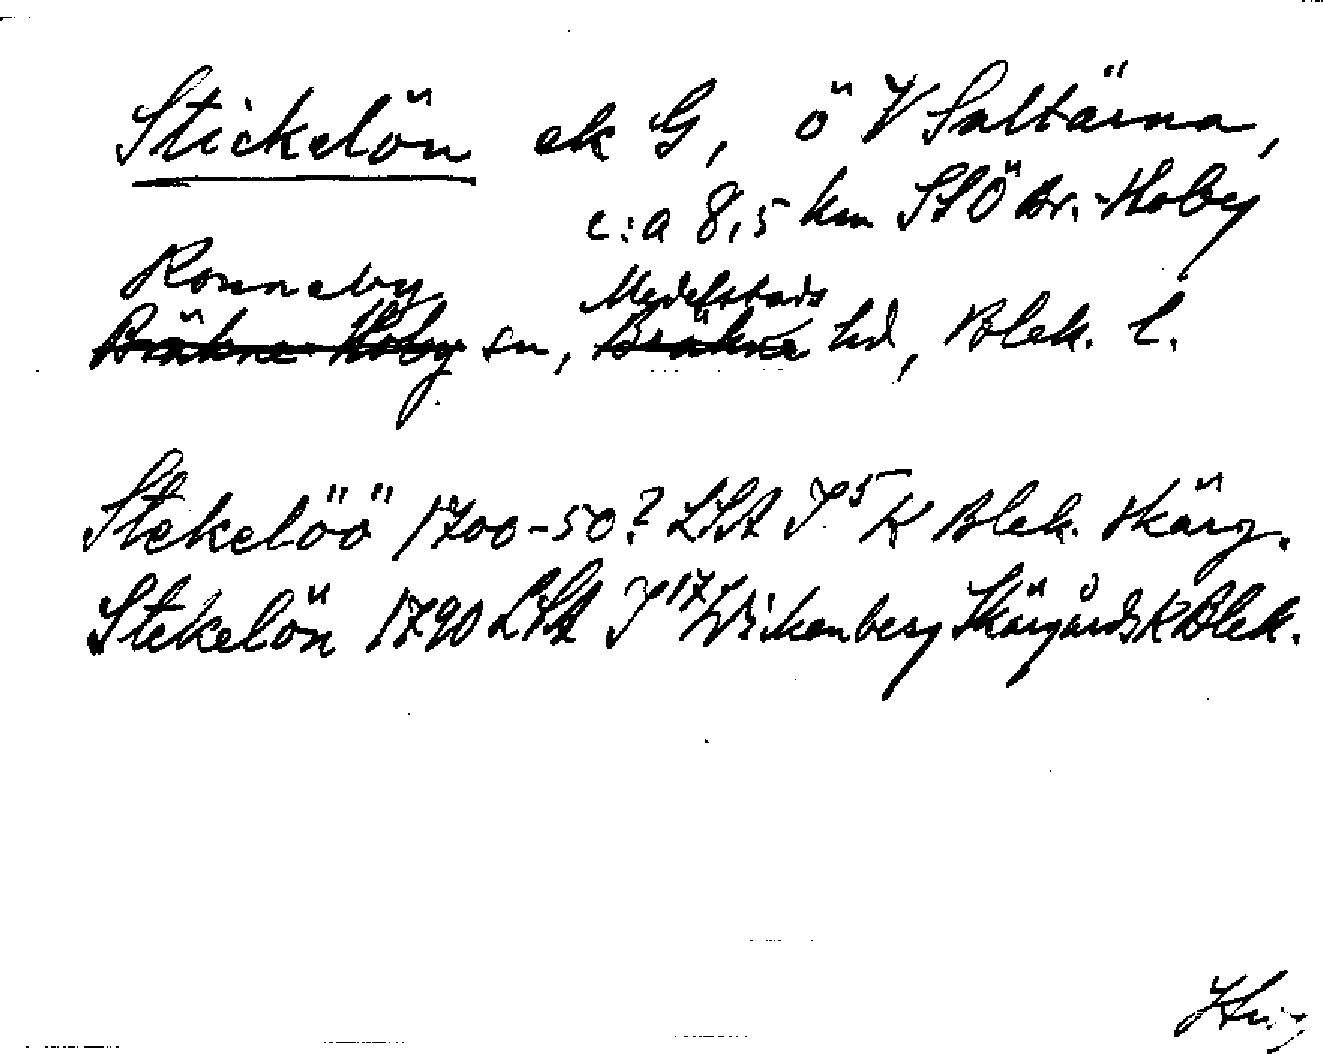 Stickelön ek G, ö V Saltärna,
c:a 8,5 km SSÖ Br.-Hoby
Ronneby Medelstads
Bräkne-Hoby sn, Bräkne hd, Blek. l.
Stekelöö 1700-50? LSA I⁵ K Blek. Skärg.
Stekelön 1790 LSA I¹⁷ Wikenberg Skärgårds K Blek.